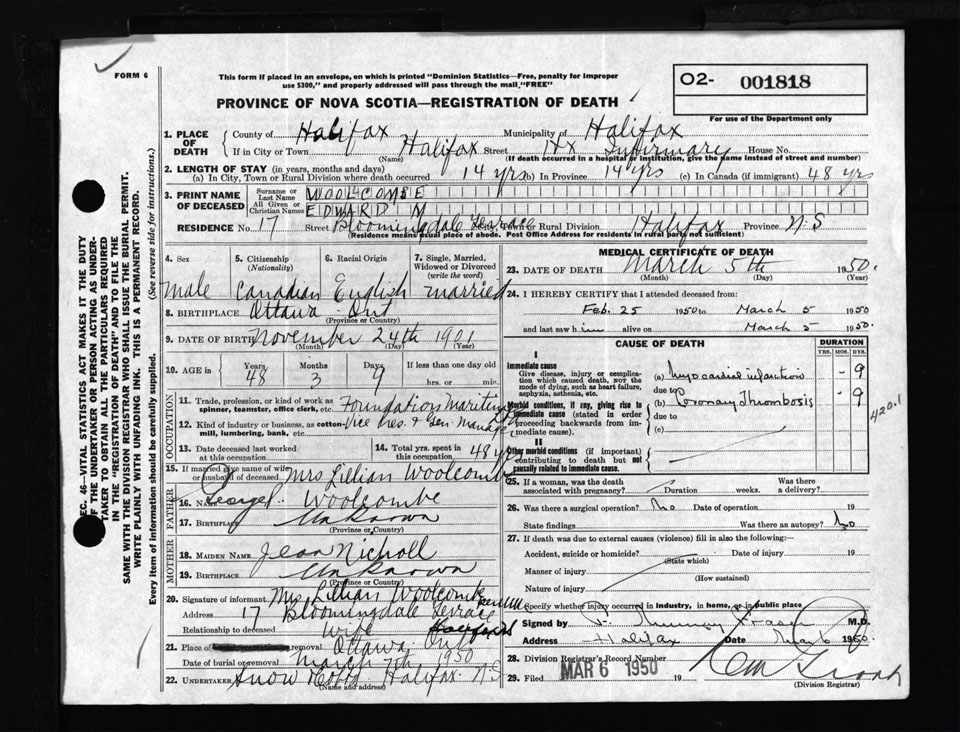 FORM 6
This form if placed in an envelope, on which is printed "Dominion Statistics—Free, penalty for improper
use $300," and properly addressed will pass through the mail "FREE"
O2- 001818
For use of the Department only
PROVINCE OF NOVA SCOTIA—REGISTRATION OF DEATH
SEC. 46—VITAL STATISTICS ACT MAKES IT THE DUTY
OF THE UNDERTAKER OR PERSON ACTING AS UNDER-
TAKER TO OBTAIN ALL THE PARTICULARS REQUIRED
IN THE "REGISTRATION OF DEATH" AND TO FILE THE
SAME WITH THE DIVISION REGISTRAR WHO SHALL ISSUE THE BURIAL PERMIT.
WRITE PLAINLY WITH UNFADING INK. THIS IS A PERMANENT RECORD.
Every item of information should be carefully supplied. (See reverse side for instructions.)
1. PLACE OF DEATH County of Halifax Municipality of Halifax
If in City or Town Halifax Street Hx Infirmary House No.
(Name) (If death occurred in a hospital or institution, give the name instead of street and number)
2. LENGTH OF STAY (in years, months and days)
(a) In City, Town or Rural Division where death occurred 14 yrs (b) In Province 14 yrs (c) In Canada (if immigrant) 48 yrs
3. PRINT NAME OF DECEASED
Surname or Last Name WOOLCOMBE
All Given or Christian Names EDWARD M
RESIDENCE No. 17 Street Bloomingdale Terrace City, Town or Rural Division Halifax Province N.S
(Residence means usual place of abode. Post Office Address for residents in rural parts not sufficient)
4. Sex 5. Citizenship (Nationality) 6. Racial Origin 7. Single, Married, Widowed or Divorced (write the word)
Male Canadian English married
8. BIRTHPLACE Ottawa Ont
(Province or Country)
9. DATE OF BIRTH November 24th 1901
(Month) (Day) (Year)
10. AGE in Years Months Days If less than one day
48 3 9 hrs. or min.
OCCUPATION
11. Trade, profession or kind of work as spinner, teamster, office clerk, etc. Foundation Maritime
12. Kind of industry or business, as cotton-mill, lumbering, bank, etc. Vice Pres. & Gen. Manager
13. Date deceased last worked at this occupation 14. Total yrs. spent in this occupation 48 yrs
15. If married give name of wife or husband of deceased Mrs Lillian Woolcombe
FATHER
16. Name George Woolcombe
17. Birthplace Unknown
(Province or Country)
MOTHER
18. MAIDEN NAME Jean Nicholl
19. BIRTHPLACE Unknown
(Province or Country)
20. Signature of informant Mrs Lillian Woolcombe
Address 17 Bloomingdale Terrace
Relationship to deceased wife Halifax
21. Place of removal Ottawa Ont
Date of burial or removal March 7th 1950
22. UNDERTAKER Snow & Co Ltd. Halifax. N.S
(Name and address)
MEDICAL CERTIFICATE OF DEATH
23. DATE OF DEATH March 5th 1950.
(Month) (Day) (Year)
24. I HEREBY CERTIFY that I attended deceased from
Feb. 25 1950 to March 5 1950
and last saw him alive on March 5 1950.
CAUSE OF DEATH DURATION
YRS. MOS. DYS.
I
Immediate cause
Give disease, injury or complication which caused death, not the mode of dying, such as heart failure, asphyxia, asthenia, etc.
(a) Myocardial infarction - 9
due to
(b) Coronary thrombosis - 9
420.1
Morbid conditions, if any, giving rise to immediate cause (stated in order proceeding backwards from immediate cause).
due to
(c)
II
Other morbid conditions (if important) contributing to death but not causally related to immediate cause.
25. If a woman, was the death associated with pregnancy? Duration weeks. Was there a delivery?
26. Was there a surgical operation? No Date of operation 19
State findings Was there an autopsy? No
27. If death was due to external causes (violence) fill in also the following:—
Accident, suicide or homicide? Date of injury 19
(State which)
Manner of injury
(How sustained)
Nature of injury
Specify whether injury occurred in industry, in home, or in public place
Signed by Murray Fraser M.D.
Address Halifax Date Mar 6 1950.
28. Division Registrar's Record Number
29. Filed MAR 6 1950 19
(Division Registrar)